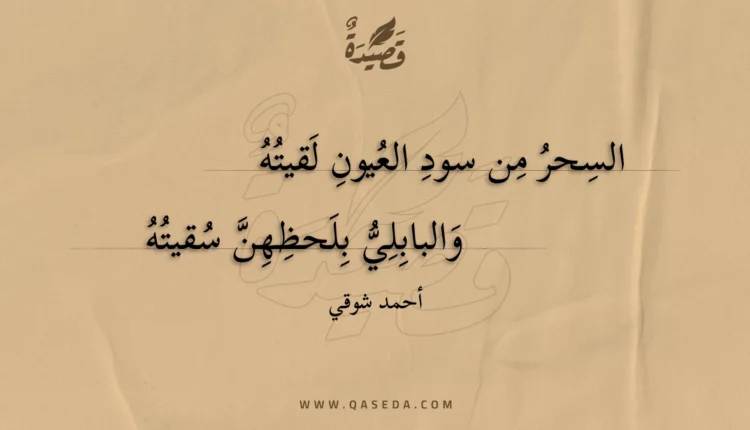 قَصِيدَةٌ
السِحرُ مِن سودِ العُيونِ لَقيتُهُ
وَالبابِلِيُّ بِلَحظِهِنَّ سُقيتُهُ
أحمد شوقي
WWW.QASEDA.COM